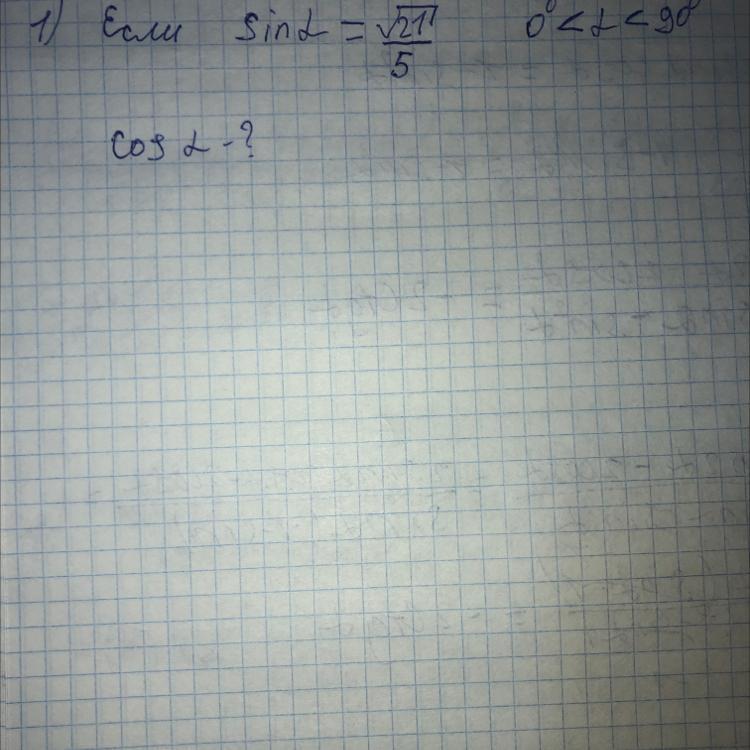 1) Если sin α = √21/5 0° < α < 90°
cos α - ?